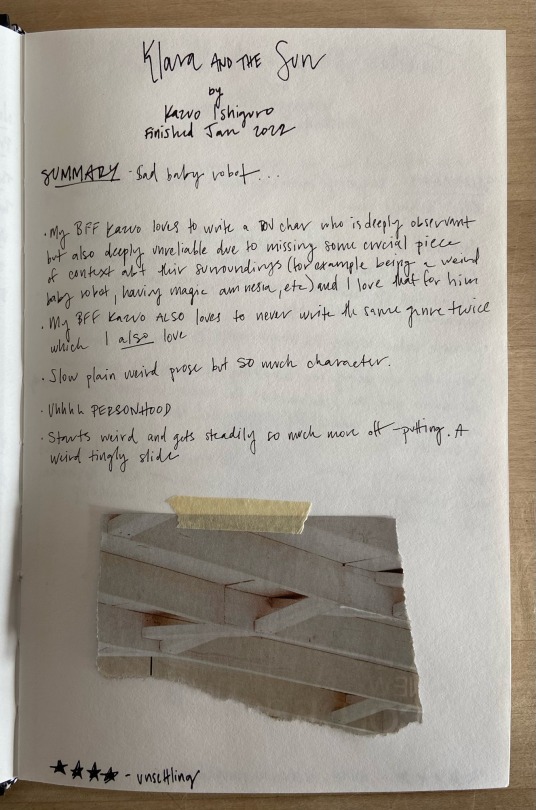 Klara AND THE Sun
by
Kazuo Ishiguro
Finished Jan 2022
SUMMARY - Sad baby robot...
· My BFF Kazuo loves to write a POV char who is deeply observant
but also deeply unreliable due to missing some crucial piece
of context abt their surroundings (for example being a weird
baby robot, having magic amnesia, etc) and I love that for him
· My BFF Kazuo ALSO loves to never write the same genre twice
which I also love
· Slow plain weird prose but SO much character.
· Uhhhh PERSONHOOD
· Starts weird and gets steadily so much more off-putting. A
weird tingly slide
★★★★ - unsettling